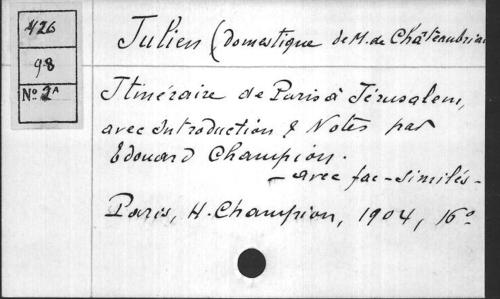 426
98
No 2A
Julien (Domestique de M. de Châteaubrian
Itinéraire de Paris à Jérusalem,
avec Introduction & Notes par
Edouard Champion.
- avec fac-similés -
Paris, H. Champion, 1904, 16o